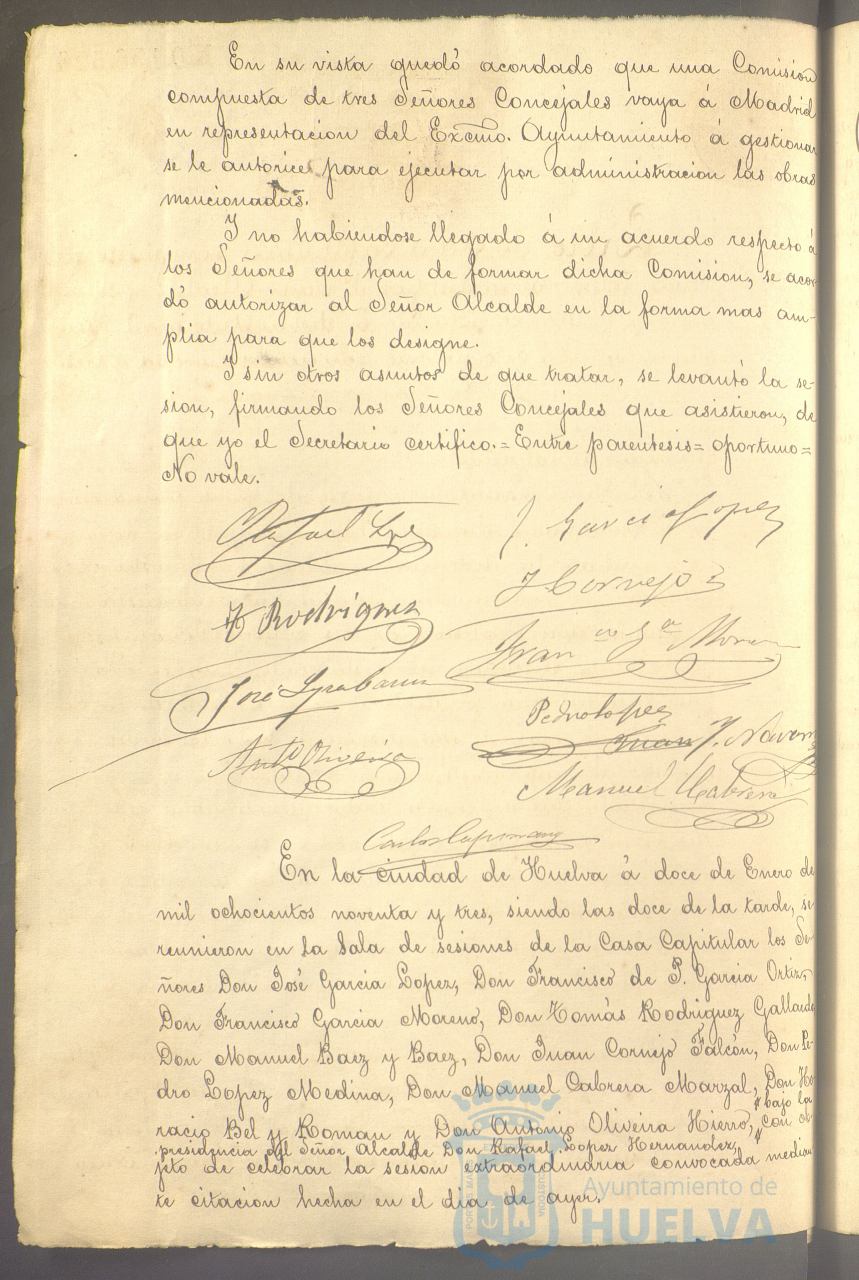 En su vista quedó acordado que una Comision
compuesta de tres Señores Concejales vaya á Madrid
en representacion del Excmo. Ayuntamiento á gestionar
se le autorice para ejecutar por administracion las obras
mencionadas.
Y no habiendose llegado á un acuerdo respecto á
los Señores que han de formar dicha Comision, se acor-
dó autorizar al Señor Alcalde en la forma mas am-
plia para que los designe.
Y sin otros asuntos de que tratar, se levantó la se-
sion, firmando los Señores Concejales que asistieron, de
que yo el Secretario certifico.=Entre parentesis=oportuno=
No vale.
Rafael Lopez
J. Garcia Lopez
T Rodriguez
J Cornejo
Fran co Ga Moreno
José
Pedro Lopez
Juan J. Navarro
Anto Oliveira
Manuel Cabrera
Carlos
En la ciudad de Huelva á doce de Enero de
mil ochocientos noventa y tres, siendo las doce de la tarde, se
reunieron en la Sala de sesiones de la Casa Capitular los Se-
ñores Don José Garcia Lopez, Don Francisco de P. Garcia Ortiz,
Don Francisco Garcia Moreno, Don Tomás Rodriguez Gallardo,
Don Manuel Baez y Baez, Don Juan Cornejo Falcón, Don Pe-
dro Lopez Medina, Don Manuel Cabrera Marzal, Don Ho-
racio Bel y Roman y Don Antonio Oliveira Hierro, bajo la
presidencia del Señor Alcalde Don Rafael Lopez Hernandez, con ob-
jeto de celebrar la sesion extraordinaria convocada median-
te citacion hecha en el dia de ayer.
Ayuntamiento de
HUELVA